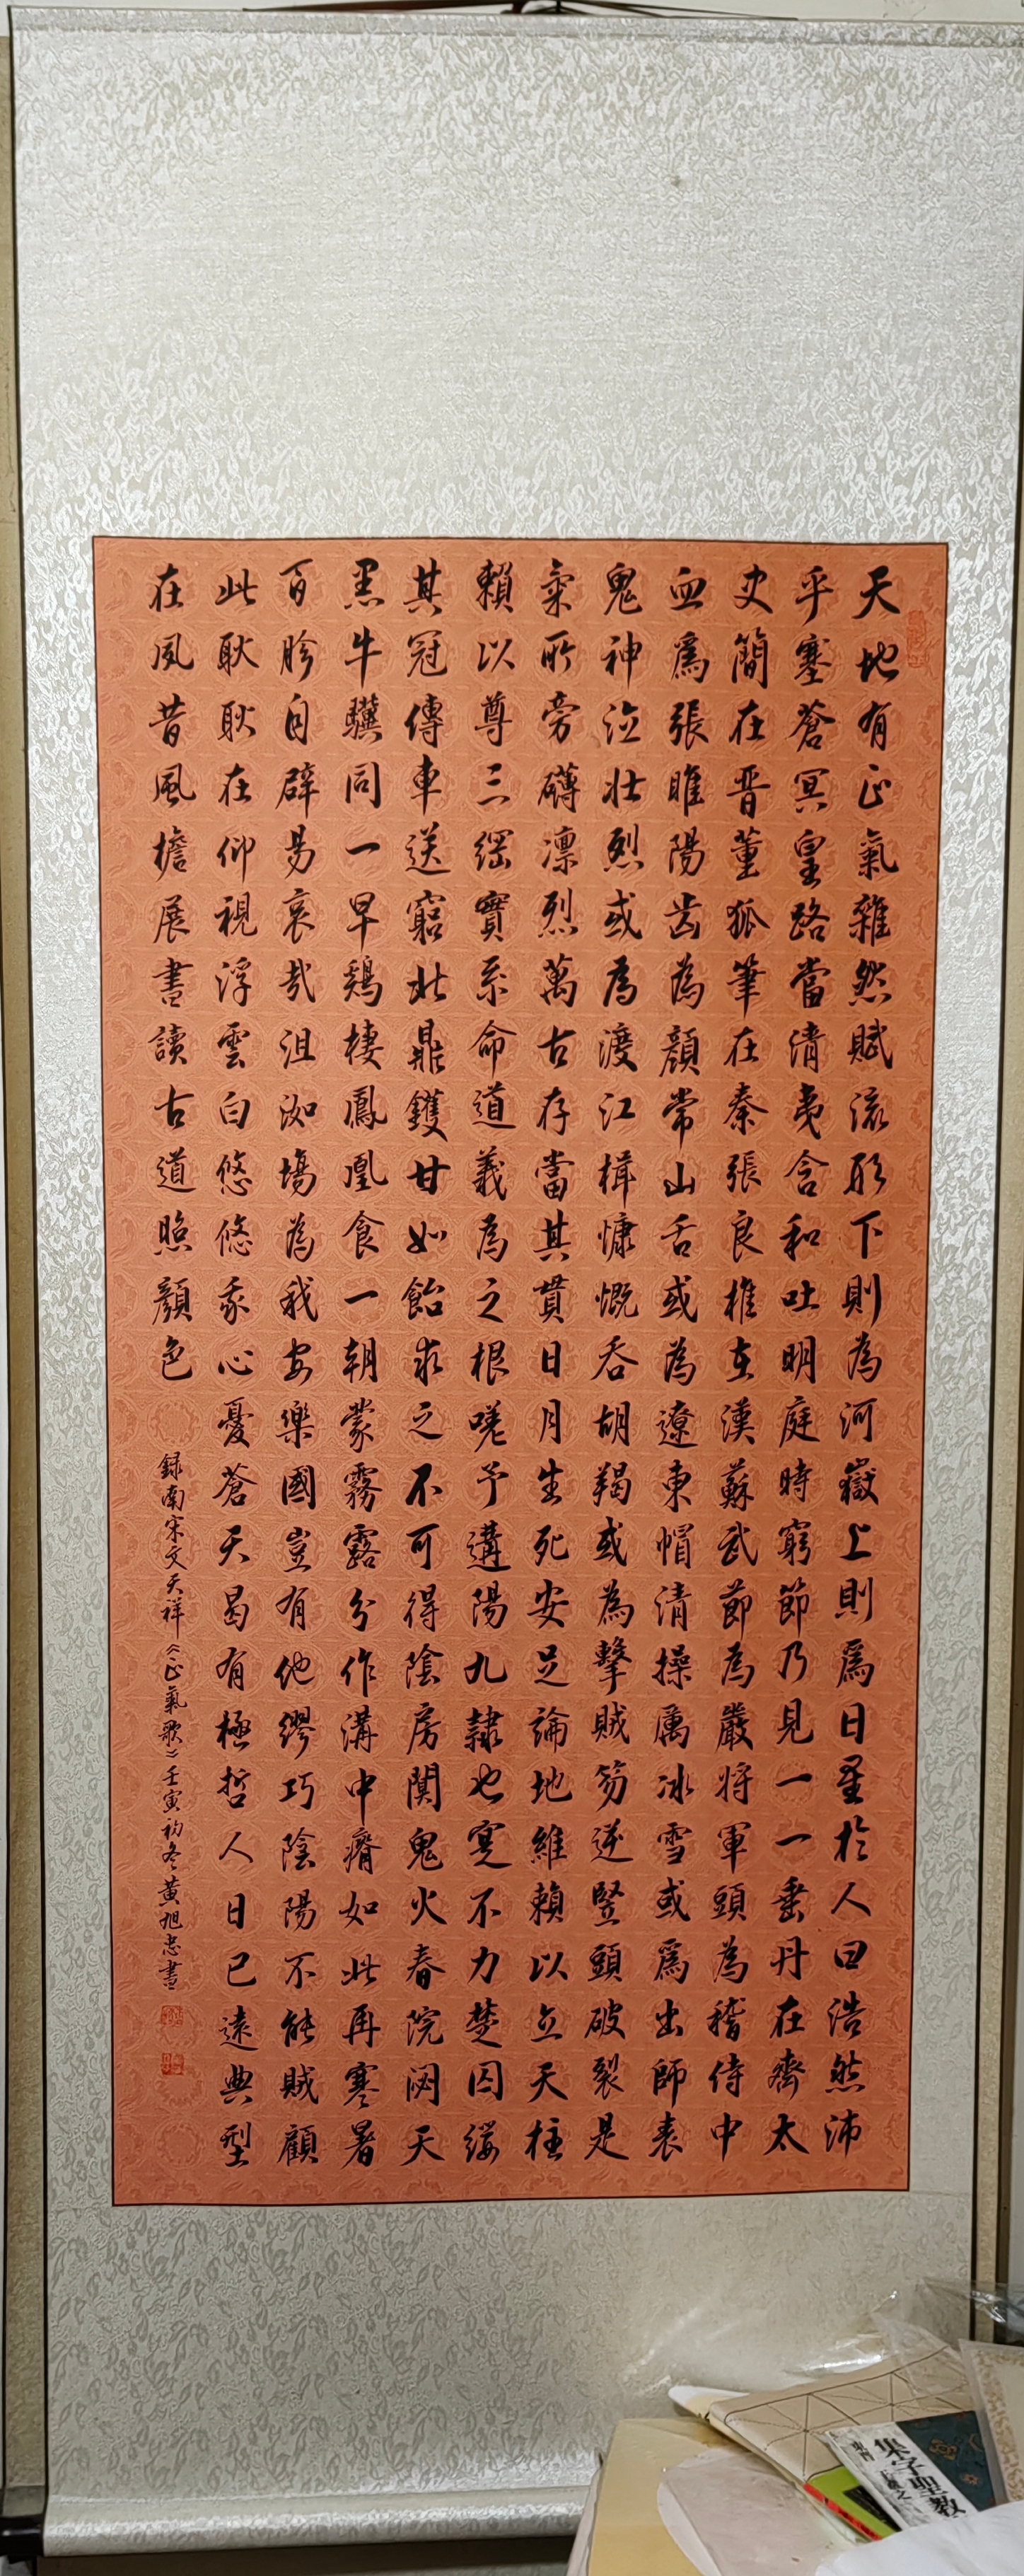 天地有正氣雜然賦流形下則為河嶽上則爲日星於人曰浩然沛
乎塞蒼冥皇路當清夷含和吐明庭時窮節乃見一一垂丹在齊太
史簡在晋董狐筆在秦張良椎在漢蘇武節為嚴將軍頭為稽侍中
血爲張睢陽齒為顏常山舌或為遼東帽清操厲冰雪或爲出師表
鬼神泣壯烈或為渡江楫慷慨吞胡羯或為擊賊笏逆豎頭破裂是
氣所旁礴凛烈萬古存當其貫日月生死安足論地維賴以立天柱
賴以尊三綱實系命道義為之根嗟予遘陽九隸也寔不力楚囚纓
其冠傳車送窮北鼎鑊甘如飴求之不可得陰房闃鬼火春院閟天
黑牛驥同一早鷄棲鳳凰食一朝蒙霧露分作溝中瘠如此再寒暑
百胗自辟易哀哉沮洳場為我安樂國豈有他繆巧陰陽不能賊顧
此耿耿在仰視浮雲白悠悠我心憂蒼天曷有極哲人日已遠典型
在夙昔風檐展書讀古道照顏色
録南宋文天祥《正氣歌》壬寅初冬黃旭忠書
集字聖教